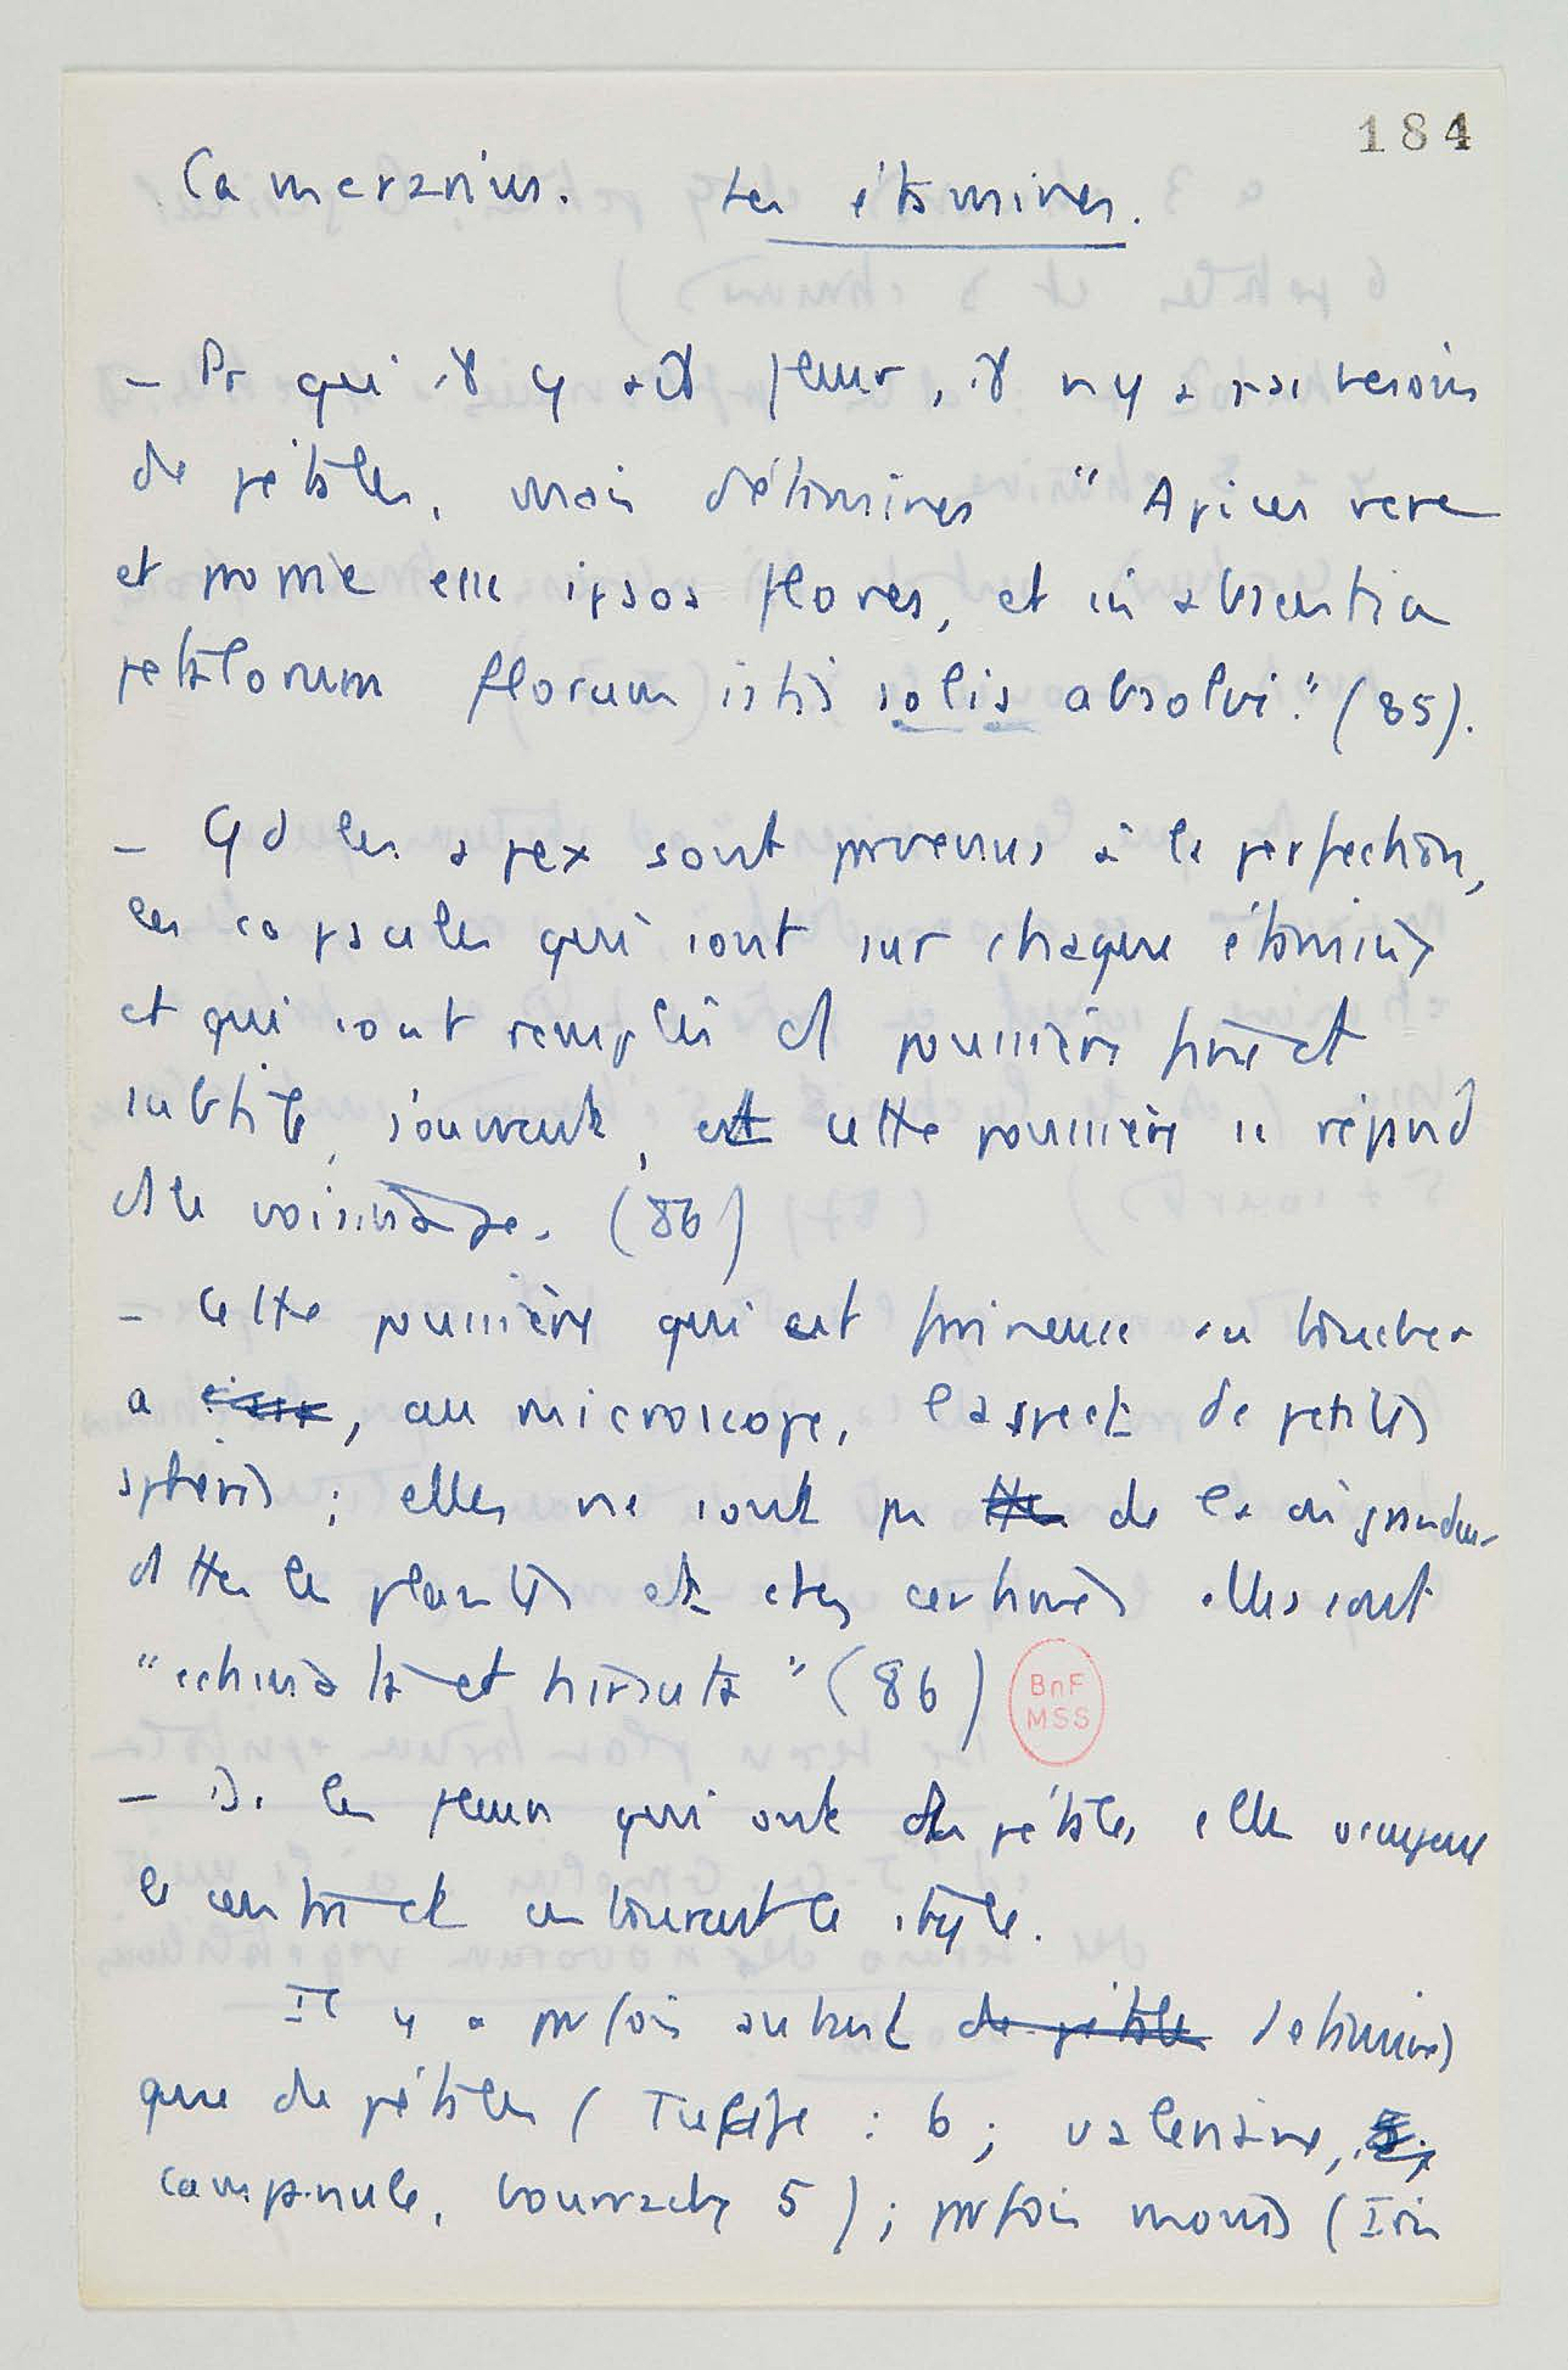 184
Camerarius. Les étamines.
– Pr qu'il y ait fleur, il n'y a pas besoin
de pétales, mais d'étamines " Apices vere
et proprie esse ipsos flores, et in absentia
petalorum florum istis solis absolvi." (85).
– Qd les apex sont parvenus à la perfection,
les capsules qui sont sur chaque étamines
et qui sont remplis d poussière fine et
subtile, s'ouvrent, et cette poussière se répand
ds le voisinage. (86)
– Cette poussière qui est au toucher
a , au microscope, l'aspect de petites
sphères ; elles ne sont pas de la m̂ grandeur
ds ttes les plantes et chez certaines elles sont
"echinata et hirsuta" (86)
– Ds les fleurs qui ont des pétales, elles occupent
le centre et entourent le style.
Il y a parfois autant de pétales d'étamines
que de pétales ( Tulipe : 6 ; valeriane, 5;
campanule, bourrache 5 ) ; parfois moins ( Iris
BnF
MSS